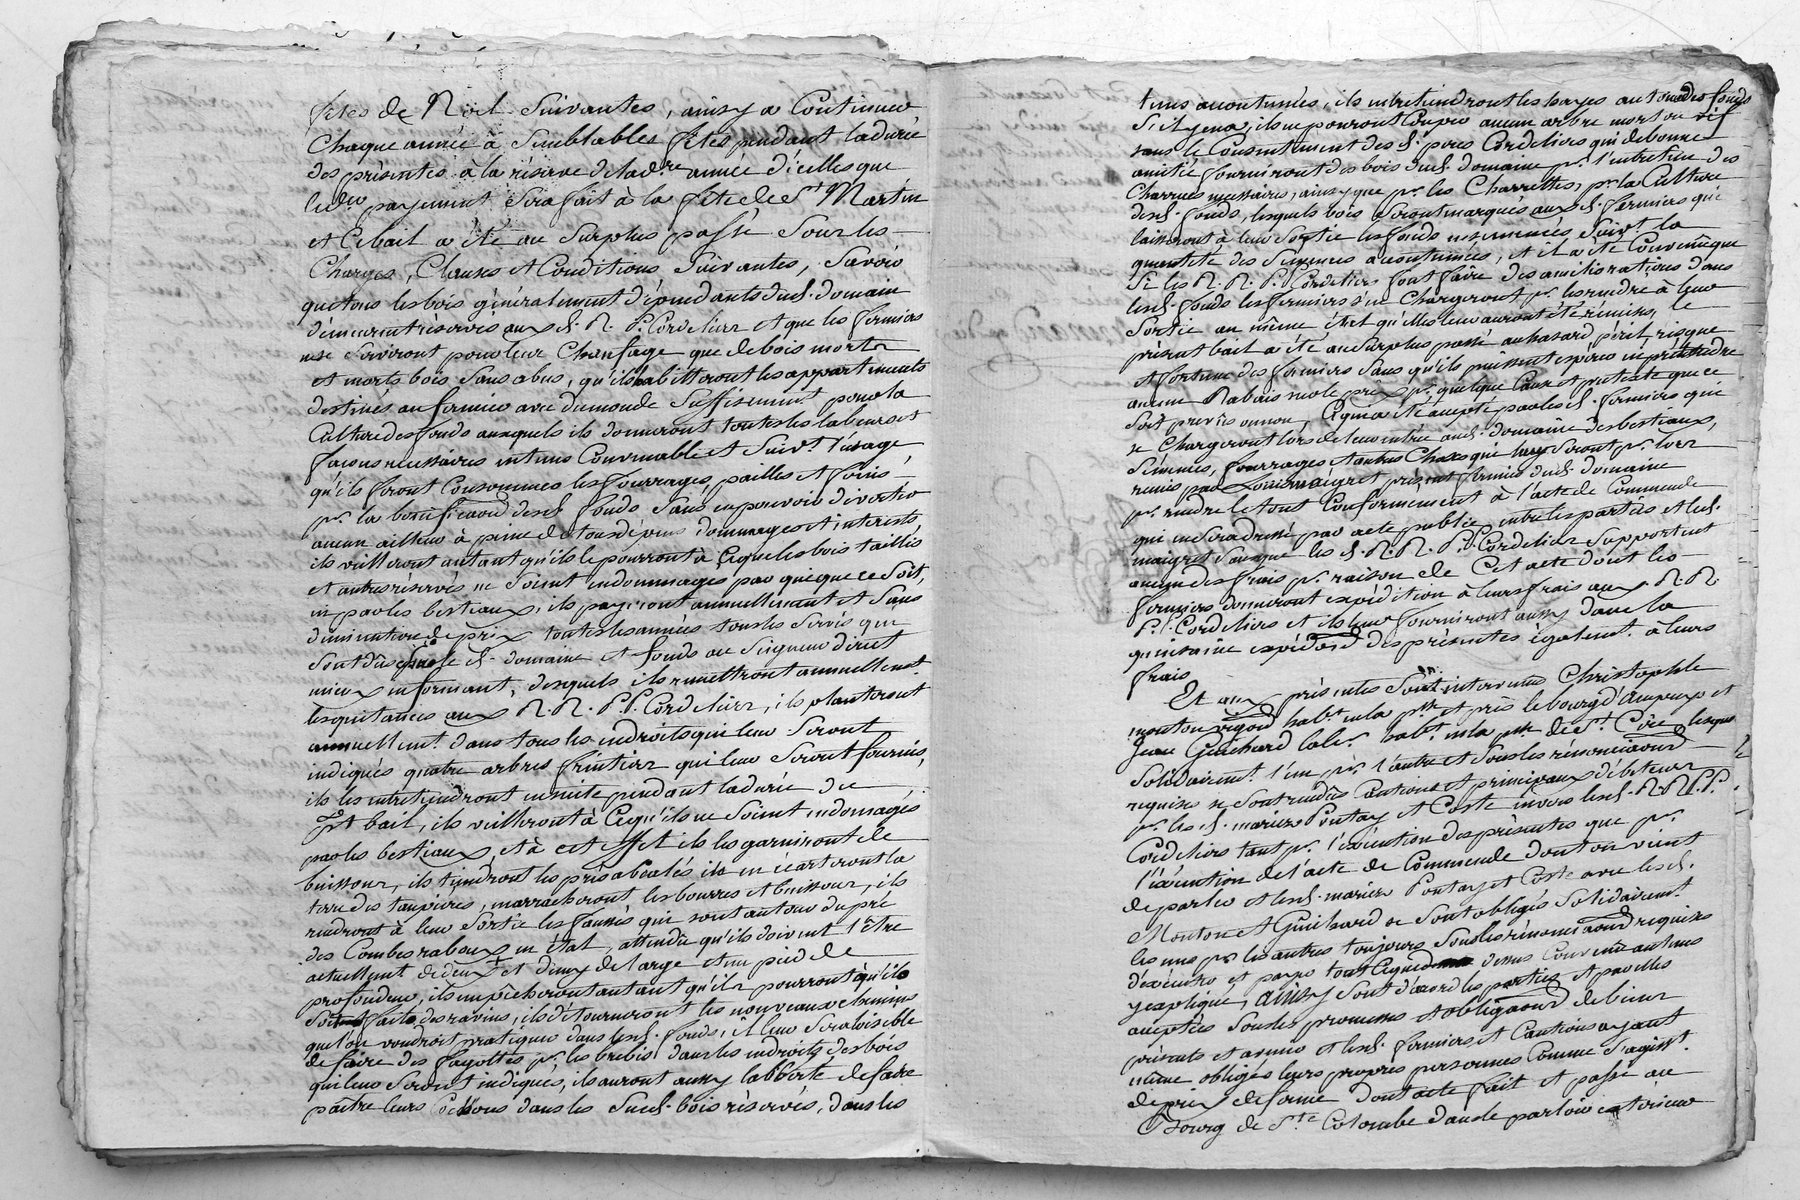 fêtes de Noël suivantes, ainsy a Continuer
Chaque année à Semblables fêtes pendant la durée
des présentes à la réserve de la d.re année d'icelles que
led. payement Sera fait à la fête de S.t Martin
et Ce bail a été au Surplus passé Sous les
Charges, Clauses et Conditions Suivantes, Savoir
que tous les bois généralement dépendants dud. domaine
demeurent réservés aux d. R. P. Cordeliers et que les fermiers
ne se Serviront pour leur Chaufage que de bois morts
et morts bois Sans abus, qu'ils habitteront les appartements
destinés au fermier avec du monde Suffisement pour la
Culture des fonds auxquels ils donneront toutes les labeurs et
façons necessaires en tems Convenable et Suiv.t l'usage,
qu'ils feront Consommer les fourrages, pailles et foins
p.r la desd. fonds Sans en pouvoir divertir
aucun ailleur à peine de tous dépens dommages et interests,
ils veilleront autant qu'ils le pourront à Ceque les bois taillis
et autres réservés ne Soient endommagés par quique ce Soit,
ny par les bestiaux, ils payeront annuellement et Sans
diminution de prix toutes les années tous les Servis qui
Sont dûs Sur le d. domaine et fonds au Seigneur direct
mieux informant, desquels ils remettront annuellement
les quitances aux R. R. P.P. Cordeliers, ils planteront
annuellem.t dans tous les endroits qui leur Seront
indiqués quatre arbres fruitiers qui leur Seront fournis,
ils les entretiendront ensuite pendant la durée du
p.nt bail, ils veilleront à Cequ'ils ne Soient endomagés
par les bestiaux, et à cet effet ils les garniront de
buissons, ils tiendront les prés ils en écarteront la
terre des taupieres, en arracheront les bourres et buissons, ils
rendront à leur Sortie les fossés qui sont autour du pré
des Combes en état, attendu qu'ils doivent l'être
actuellem.t de deux et demy de large et un pied de
profondeur, ils empêcheront autant qu'ils pourront qu'il
Soit fait des ravins, ils détourneront les nouveaux chemins
que l'on voudroit pratiquer dans lesd. fonds, il leur Sera loisible
de faire des fagottes p.r les brebis dans les endroits des bois
qui leur Seront indiqués, ils auront aussy la liberté de faire
paître leurs Cochons dans les Susd. bois réservés, dans les
tems accoutumés, ils entretiendront les hayes autour des fonds
S'il y en a, ils ne pourront Couper aucun arbre mort ou vif
sans le Consentement des d. peres Cordeliers qui de bonne
amitié fourniront des bois dud. domaine p.r l'entretien des
Charrues necessaires, ainsy que p.r les Charrettes, p.r la Culture
desd. fonds, lesquels bois Seront marqués aux d. fermiers qui
laisseront à leur Sortie les fonds ensemencés Suiv.t la
quantité des Semences accoutumées, et il a été Convenu que
Si les R. R. P. Cordeliers font faire des améliorations dans
lesd. fonds les fermiers s'en Chargeront p.r les rendre à leur
Sortie au même état qu'elles leur auront été remises, le
présent bail a été au Surplus passé au hasard, péril, risque
et fortune des fermiers Sans qu'ils puissent espérer ni prétendre
aucun Rabais sur le prix p.r quelque Cause et pretexte que ce
Soit prevûs ou non, Cequi a été accepté par les d. fermiers qui
se Chargeront lors de leur entrée aud. domaine des bestiaux,
Semences, fourrages et autres Choses qui leur Seront p.r lors
remis par Maigret présent fermier dud. domaine
p.r rendre le tout Conformement à l'acte de Commende
qui en Sera dressé par acte public entre les parties et led.
maigret Sans que les d. R. R. P.P. Cordeliers Supportent
aucun des frais p.r raison de Cet acte dont les
fermiers donneront expédition à leurs frais aux R. R.
P.P. Cordeliers et ils leur fourniront aussy dans la
quinzaine expédi.on des présentes égalem.t à leurs
frais
Et aux présentes Sont intervenus Christophle
mouton vigneron hab.t en la p.sse et près le bourg d'Ampuis et
Jean Guichard lab.r hab.t en la p.sse de S.t Cire lesquels
Solidairem.t l'un p.r l'autre et Sous les renonciaons
requises se Sont rendus Cautions et principaux débiteurs
p.r les d. mariés Pontay et Coste envers lesd. R. R. P.P.
Cordeliers tant p.r l'exécution des présentes que p.r
l'exécution de l'acte de Commende dont on vient
de parler et lesd. mariés Pontay et Coste avec lesd.
Mouton et Guichard se Sont obligés Solidairem.t
les uns p.r les autres toujours Sous les renonciaons requises
d'exécuter et payer tout Cequi dessus Convenu aux tems
y expliqué, ainsy Sont d'accord les parties et par elles
acceptées Sous les promesses et obligaons de biens
présents et avenir et lesd. fermiers et Cautions ayant
même obligés leurs propres personnes Comme S'agiss.t
de prix de ferme dont acte fait et passé au
Bourg de S.te Colombe dans le parloir exterieur